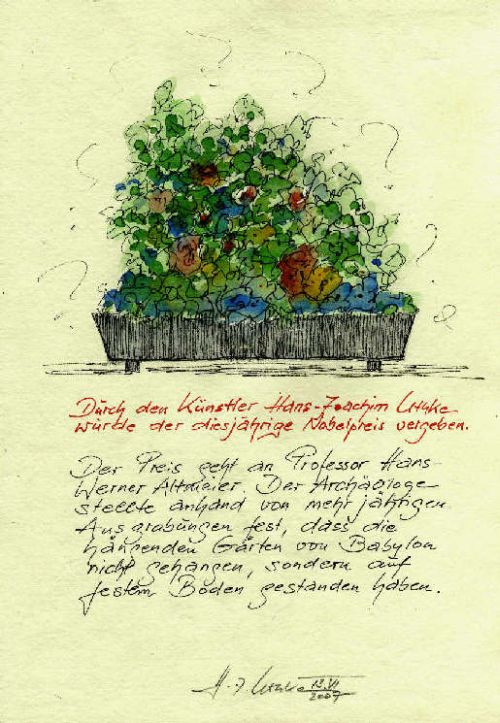 Durch den Künstler Hans-Joachim Uthke
wurde der diesjährige Nobelpreis vergeben.
Der Preis geht an Professor Hans-
Werner Altmeier. Der Archäologe
stellte anhand von mehrjährigen
Ausgrabungen fest, dass die
hängenden Gärten von Babylon
nicht gehangen, sondern auf
festem Boden gestanden haben.
H-J Uthke 13.VI
2007